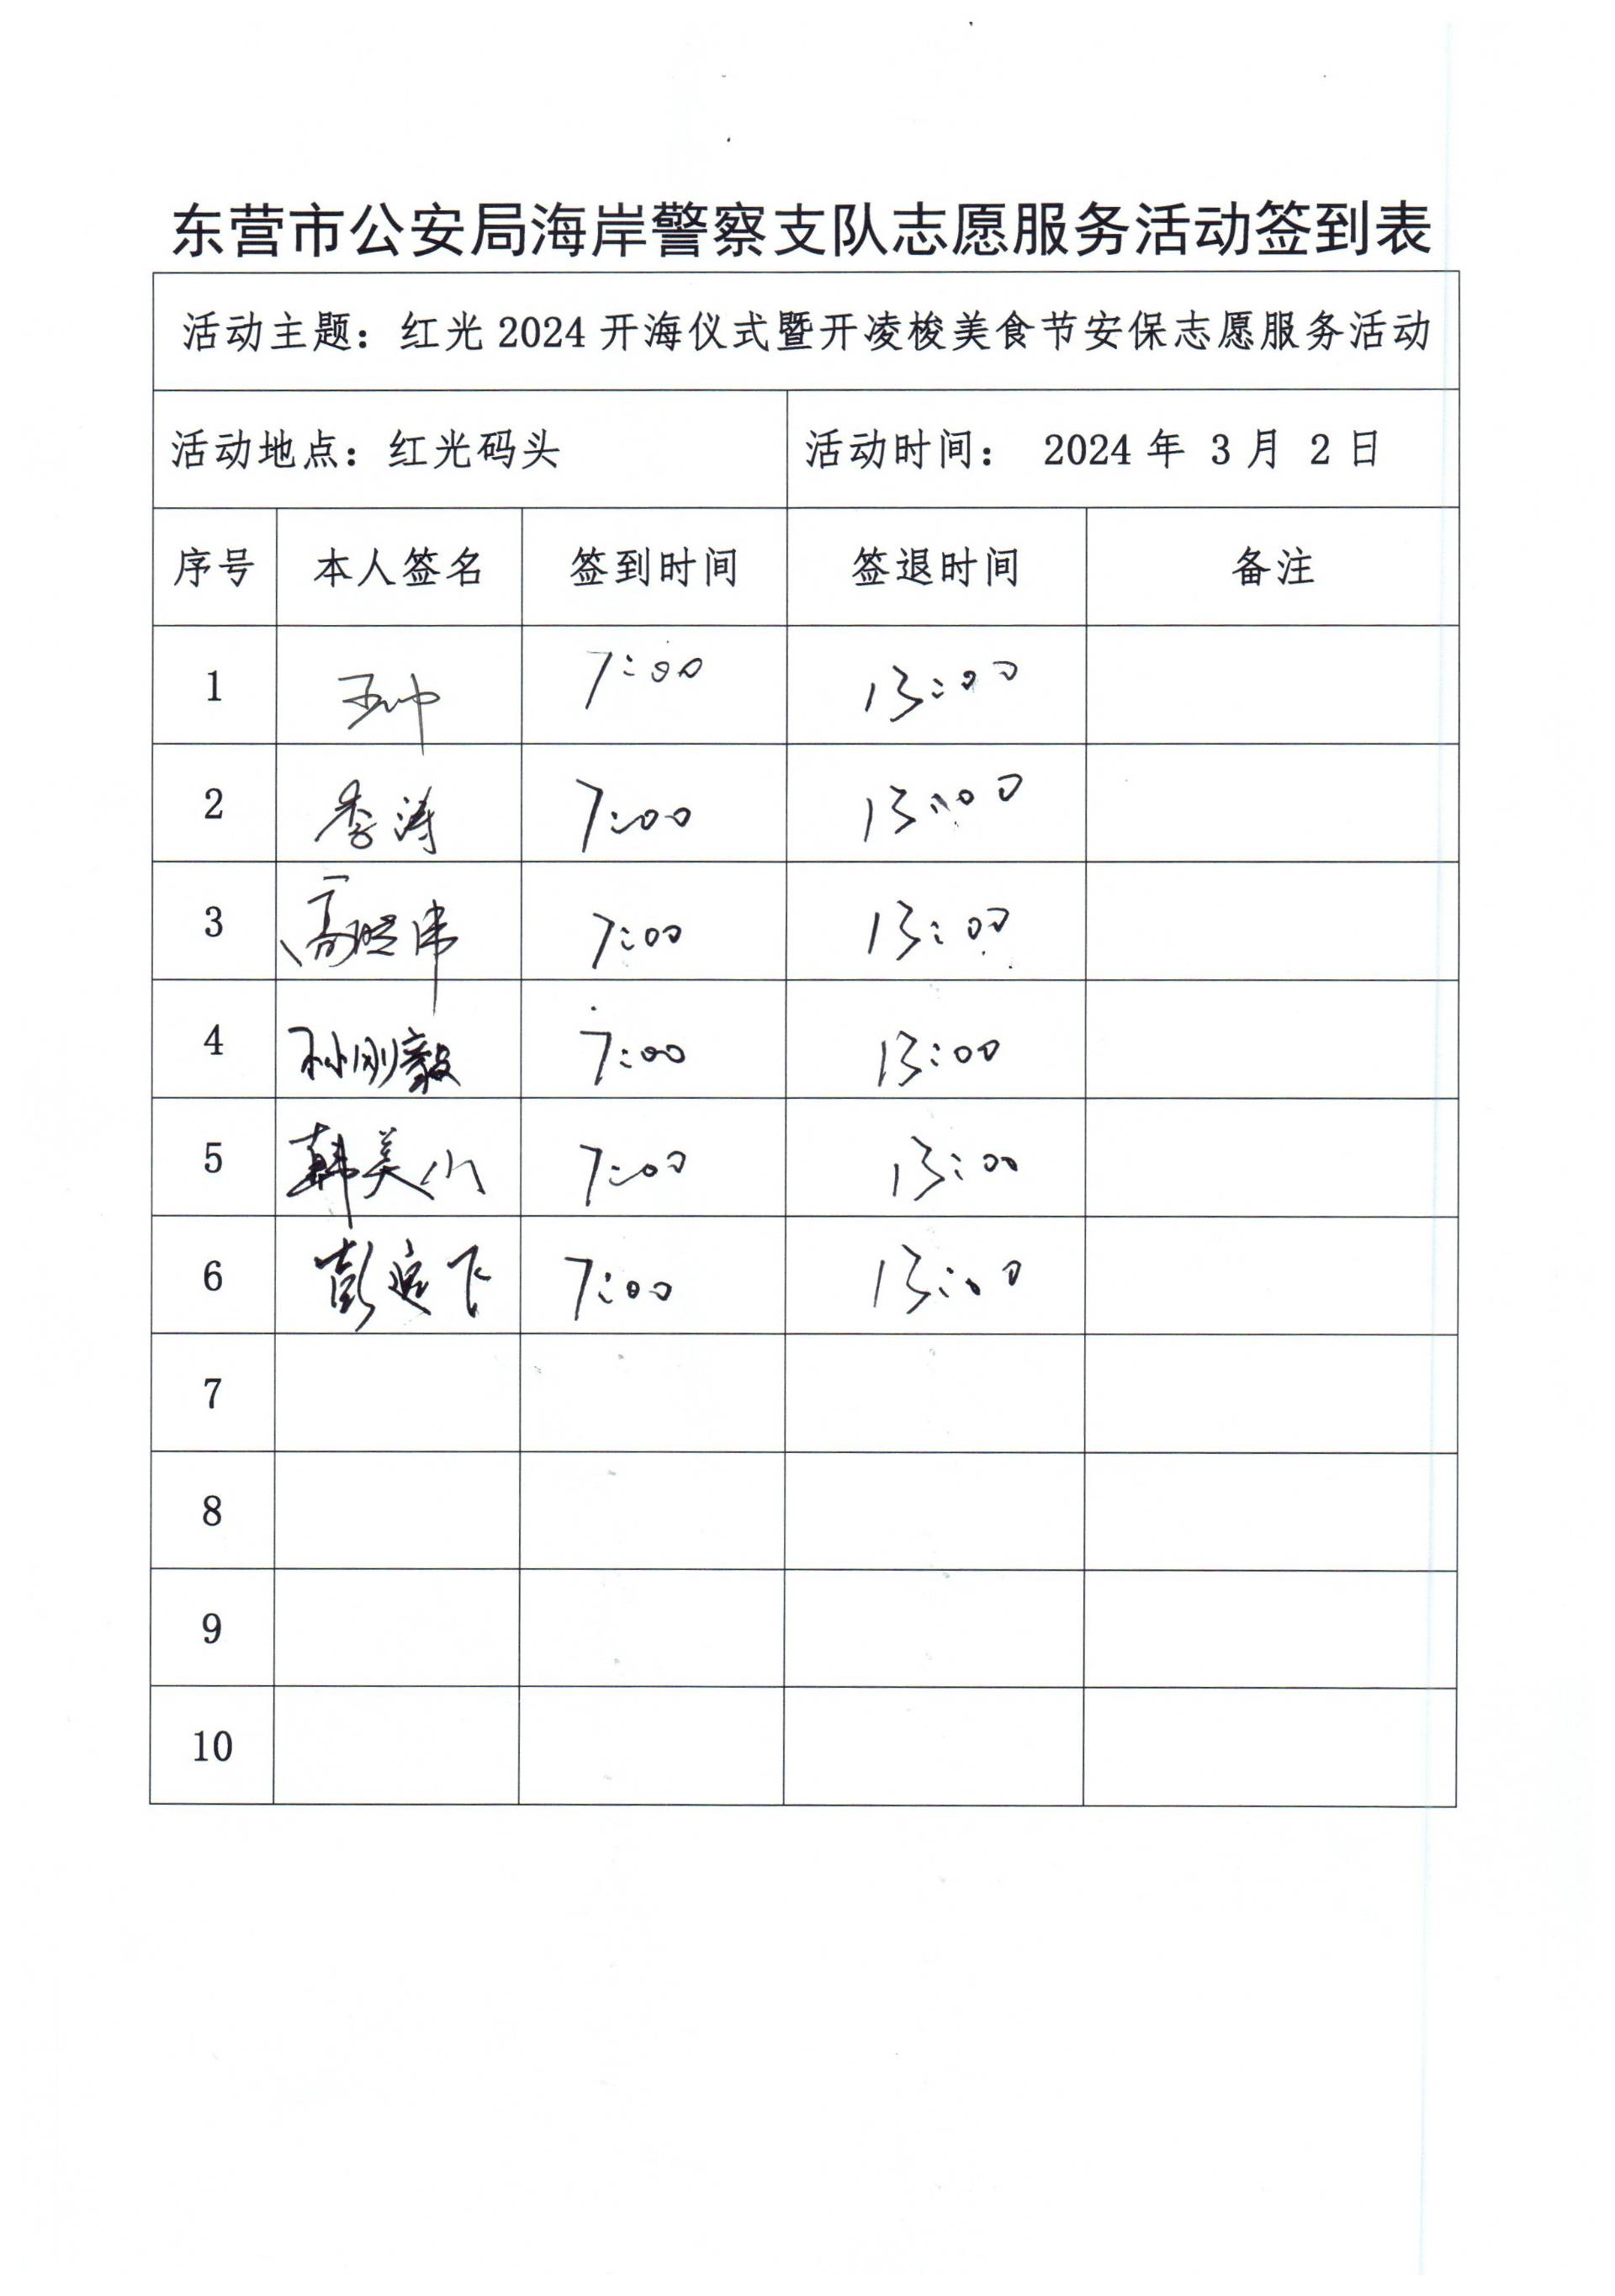 东营市公安局海岸警察支队志愿服务活动签到表
活动主题：红光 2024 开海仪式暨开凌梭美食节安保志愿服务活动
活动地点：红光码头 活动时间： 2024 年 3 月 2 日
序号 本人签名 签到时间 签退时间 备注
1 7:00 13:00
2 李涛 7:00 13:00
3 高晓伟 7:00 13:00
4 孙刚毅 7:00 13:00
5 韩美小 7:00 13:00
6 彭延飞 7:00 13:00
7
8
9
10